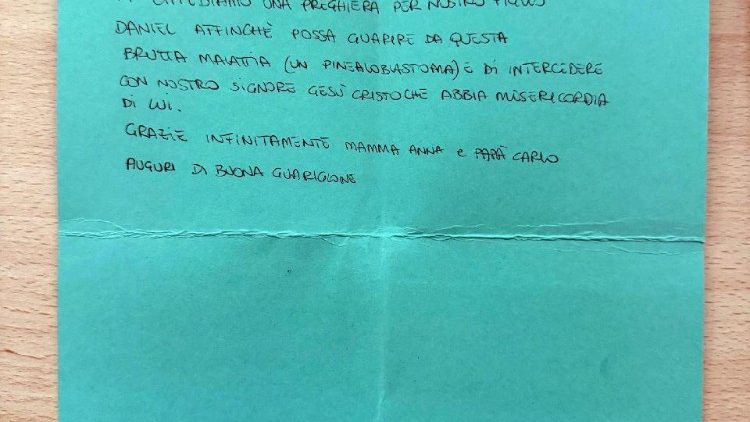 CHIEDIAMO UNA PREGHIERA PER NOSTRO FIGLIO
DANIEL AFFINCHÈ POSSA GUARIRE DA QUESTA
BRUTTA MALATTIA (UN PINEALOBLASTOMA) E DI INTERCEDERE
CON NOSTRO SIGNORE GESÙ CRISTO CHE ABBIA MISERICORDIA
DI LUI.
GRAZIE INFINITAMENTE MAMMA ANNA E PAPÀ CARLO
AUGURI DI BUONA GUARIGIONE